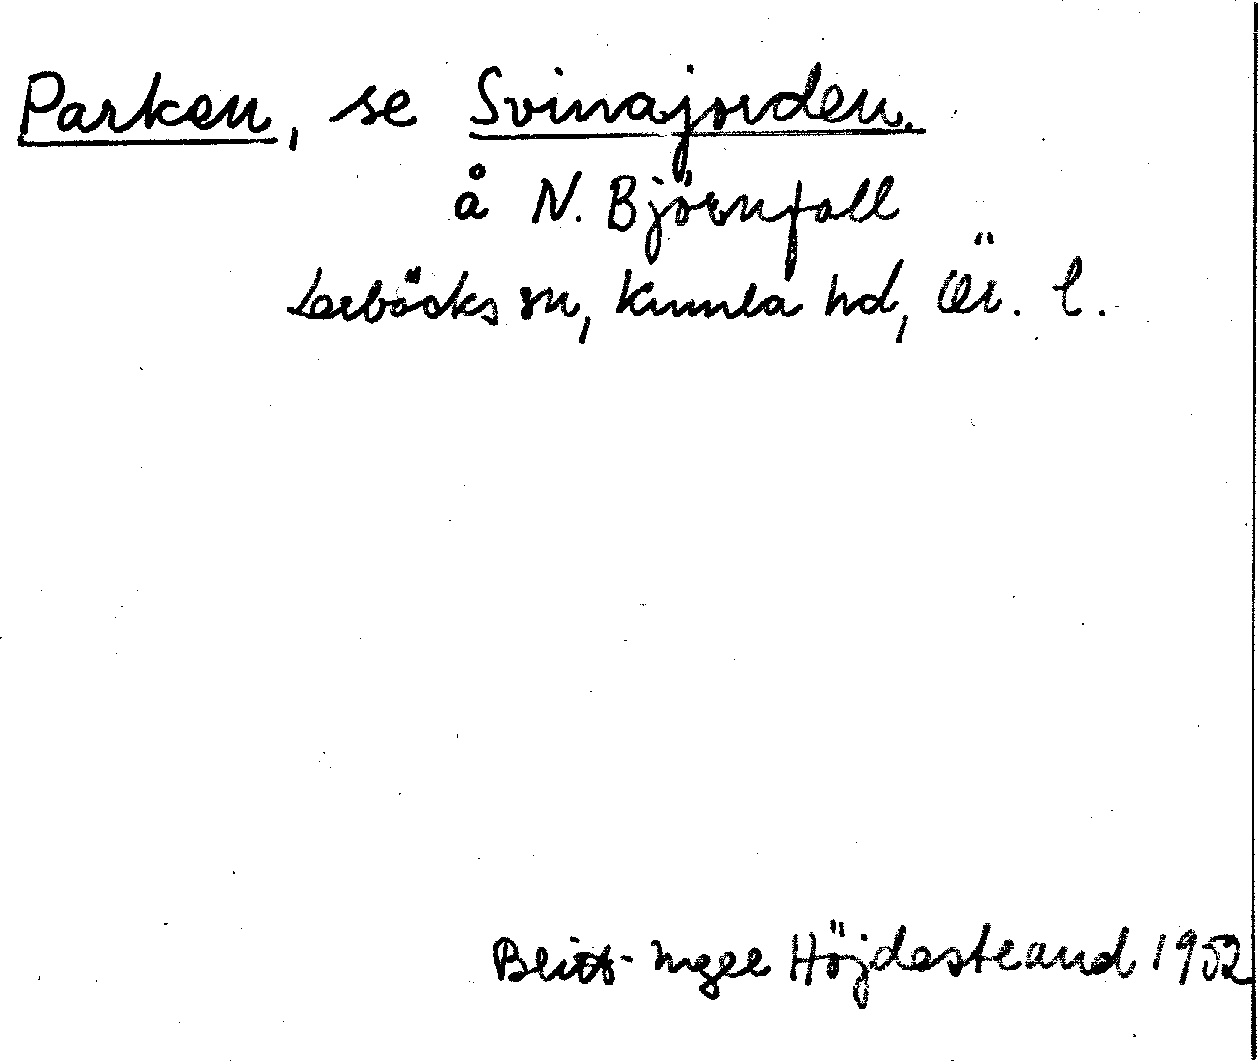 Parken, se Svinajorden.
å N. Björnfall
Lerbäcks sn, Kumla hd, Ör. l.
Britt-Inger Höjdestrand 1952